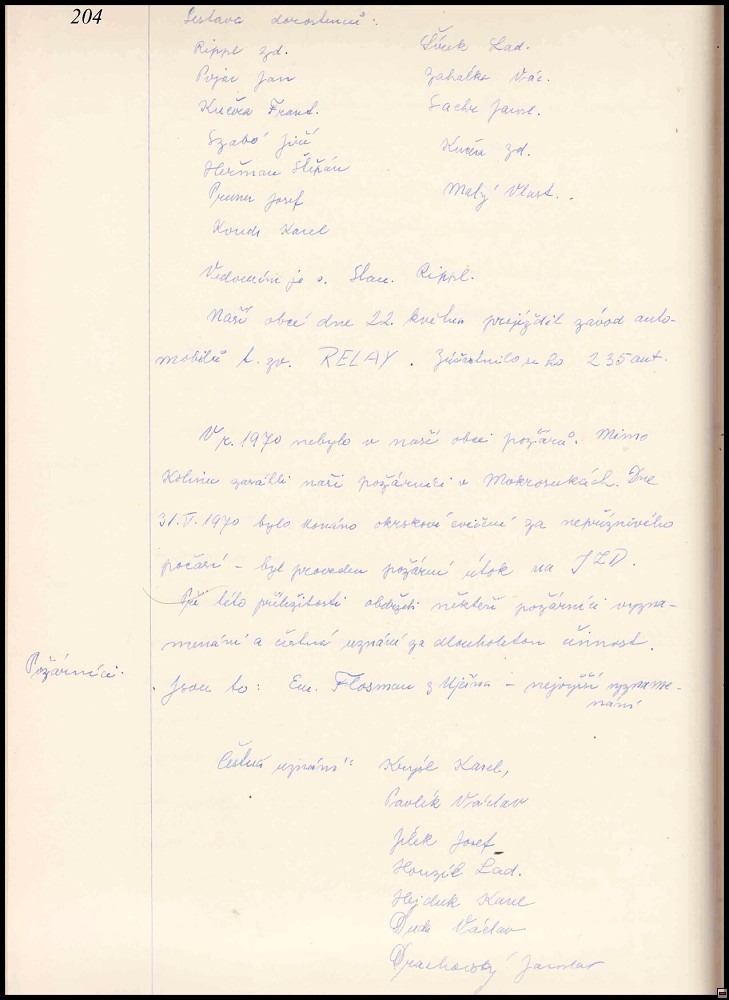 204
Sestava dorostenců:
Rippl Zd.
Pojar Jan
Kučera Frant.
Szabó Jiří
Heřman Štěpán
Pruner Josef
Karel
Lad.
Zahálka Vác.
Sachr Jarosl.
Zd.
Malý Vlast.
Vedoucím je s. Stan. Rippl.
Naší obcí dne 22. května projíždil závod auto-
mobilů t. zv. RELAY. Zúčastnilo se ho 235 aut.
V r. 1970 nebylo v naší obci požárů. Mimo
Kolinec zasáhli naši požárníci v Mokrosukách. Dne
31.V.1970 bylo konáno okrskové cvičení za nepříznivého
počasí - byl proveden požární útok na JZD.
Při této příležitosti obdrželi někteří požárníci vyzna-
menání a čestná uznání za dlouholetou činnost.
Požárníci.
Jsou to: Em. Flosman z Ujčína - nejvyšší vyzname-
nání
Čestná uznání: Karel,
Pavlík Václav
Jílek Josef
Houzík Lad.
Hejduk Karel
Duda Václav
Drachovský Jaroslav